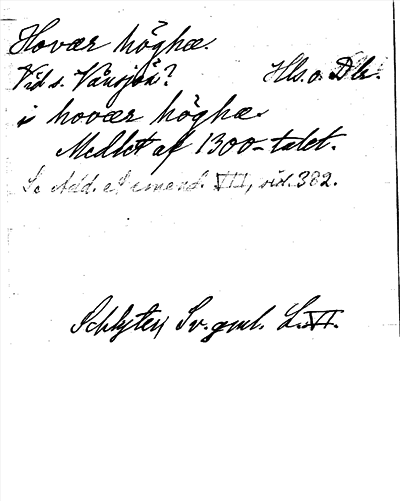 Hovær höghæ.
Vid s. Vånsjön? Hls. o. Dlr.
i hovær höghæ.
Medlet af 1300-talet.
Se Add. et emend. VII, sid. 382.
Schlyter, Sv. gml. L. VI.